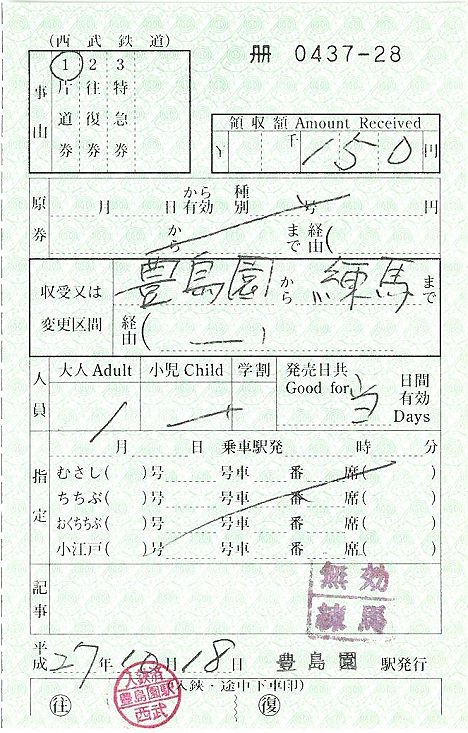 (西武鉄道)
冊 0437-28
事由
1 2 3
片道券 往復券 特急券
領収額 Amount Received
¥ 千 150 円
原券
月 日から有効 種別 号 円
から まで 経由(
収受又は変更区間
豊島園から 練馬まで
経由( ー )
人員
大人 Adult 小児 Child 学割 発売日共 Good for 当 日間有効 Days
1
指定
月 日 乗車駅発 時 分
むさし( )号 号車 番 席( )
ちちぶ( )号 号車 番 席( )
おくちちぶ( )号 号車 番 席( )
小江戸( )号 号車 番 席( )
記事
無効
練馬
平成27年12月18日 豊島園 駅発行
(入鋏・途中下車印)
入鋏済
豊島園駅
西武
往 復